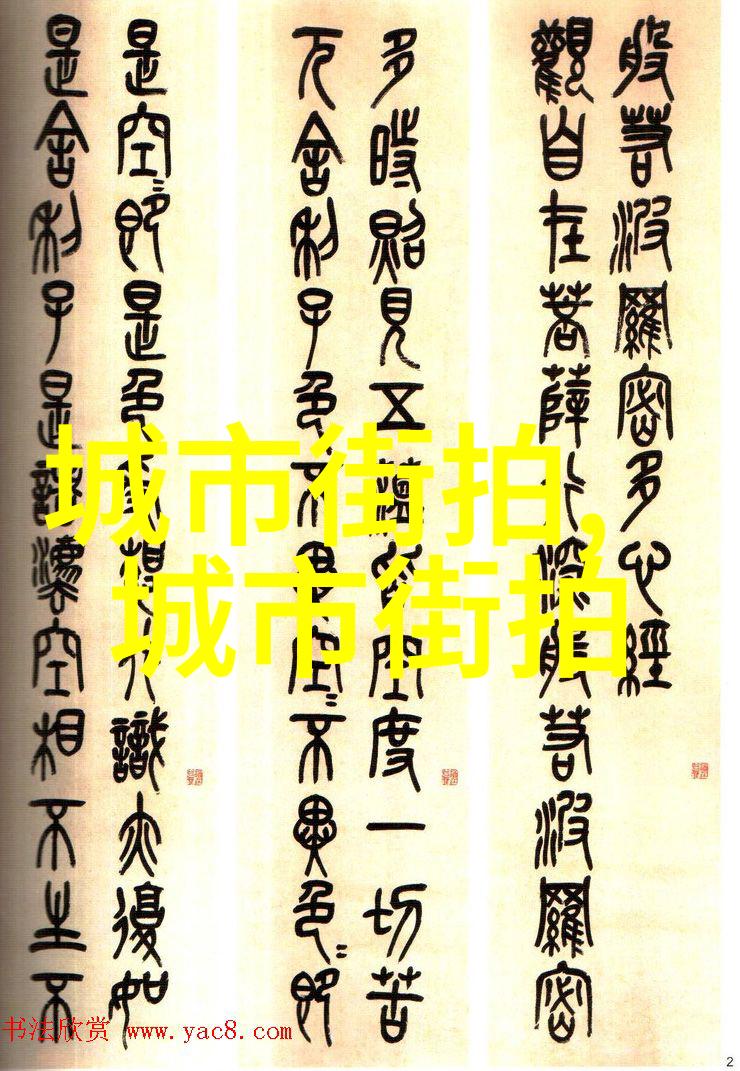 般若波羅密多心經
觀自在菩薩行深般若波羅密
多時照見五蘊皆空度一切苦
厄舍利子色不異空〻不異色〻即
是空〻即是色受想行識亦復如
是舍利子是諸灋空相不生不
城市街拍,
城市街拍
书法欣赏 www.yac8.com
2